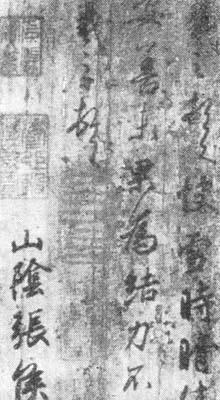 頓首快雪時晴佳
安善未果為結力不
羲之頓首
山陰張侯